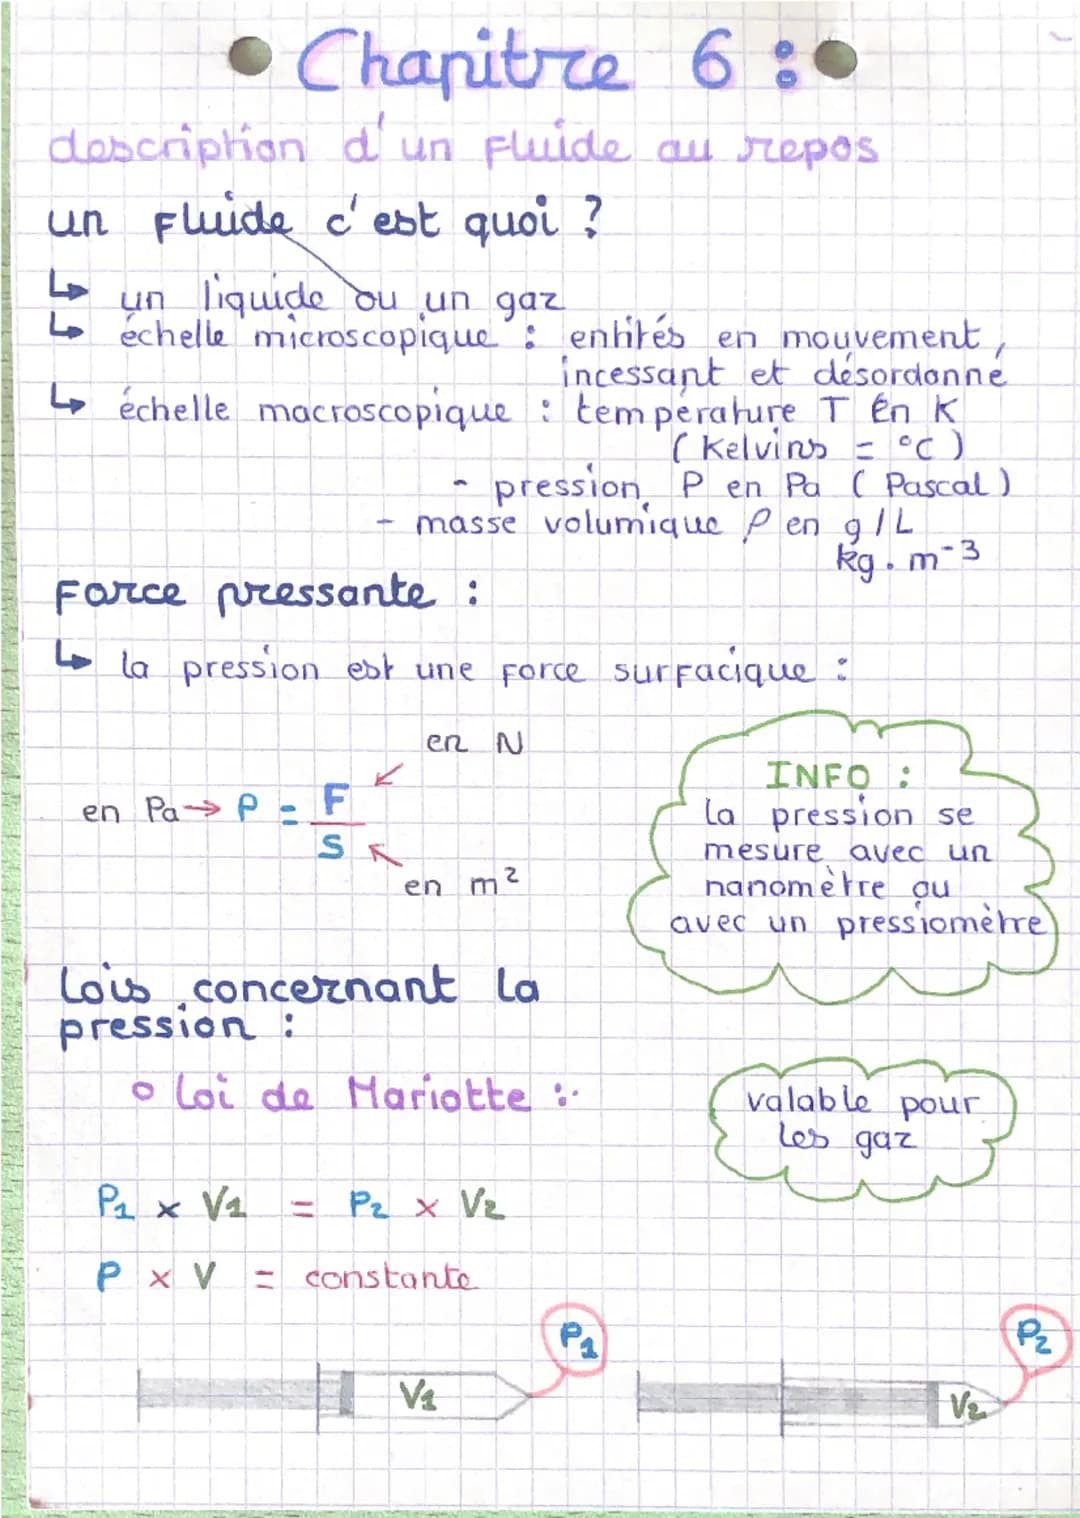 Chapitre 6 :
description d'un fluide au repos
un fluide c'est quoi ?
↳ un liquide ou un gaz
↳ échelle microscopique : entités en mouvement,
incessant et désordonné
↳ échelle macroscopique : température T en K
(Kelvins = °C)
- pression P en Pa (Pascal)
- masse volumique ρ en g/L
kg.m-3
Force pressante :
↳ la pression est une force surfacique :
en N
en Pa → P = F
S
en m²
INFO :
la pression se
mesure avec un
nanomètre ou
avec un pressiomètre
Lois concernant la
pression :
o Loi de Mariotte :
valable pour
les gaz
P1 x V1 = P2 x V2
P x V = constante
P1
P2
V1
V2